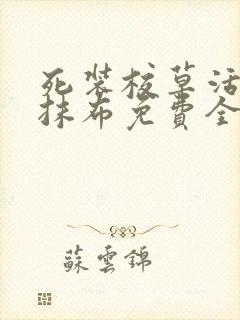 死装校草活
抹布免费全
蘇雲錦